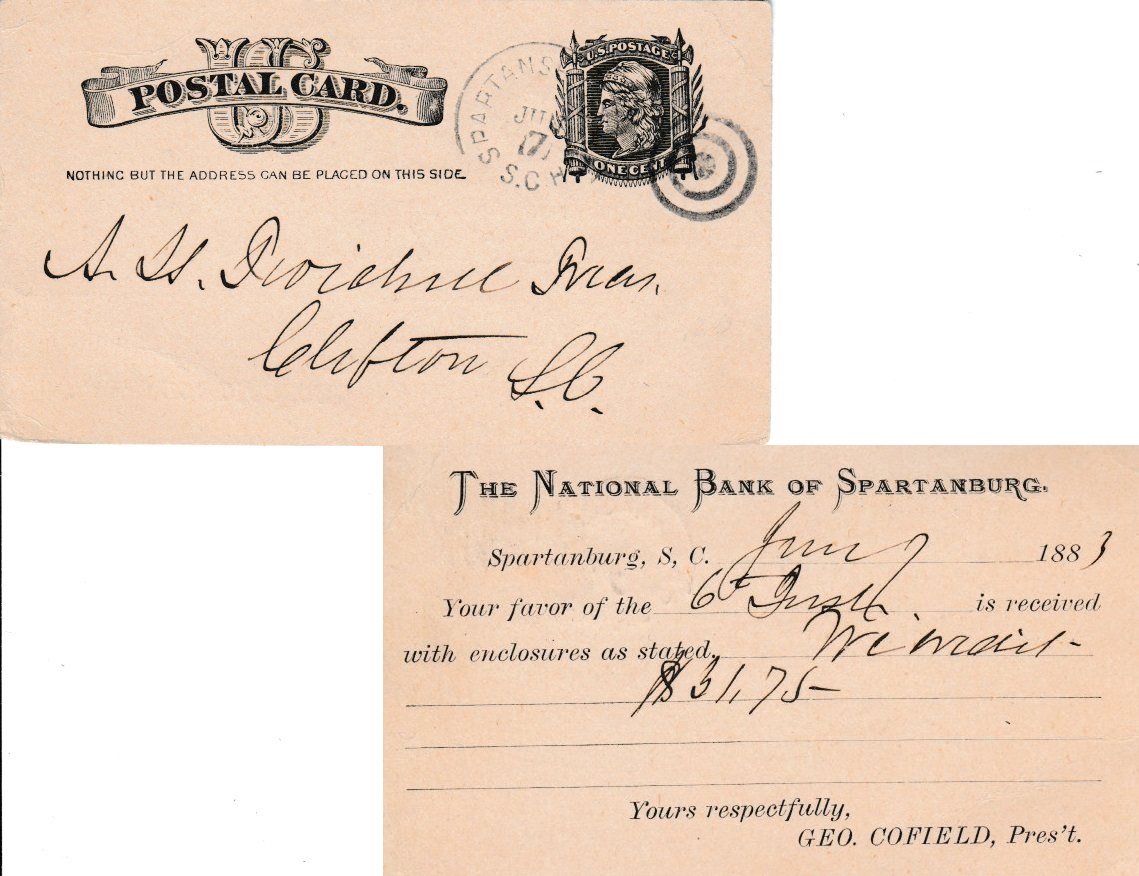 US
POSTAL CARD.
NOTHING BUT THE ADDRESS CAN BE PLACED ON THIS SIDE.
SPARTANS
JUN
7
S.C.
U.S. POSTAGE
ONE CENT
A. H. Treas.
Clifton S.C.
THE NATIONAL BANK OF SPARTANBURG.
Spartanburg, S, C. Jun 7 1883
Your favor of the 6th Inst. is received
with enclosures as stated. We credit -
$31,75-
Yours respectfully,
GEO. COFIELD, Pres't.